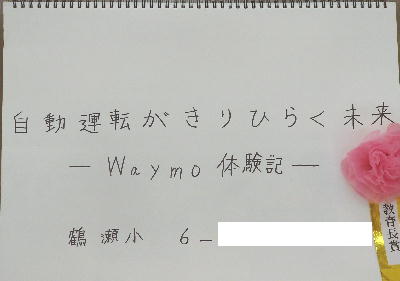 自動運転がきりひらく未来
― Waymo 体験記 ―
鶴瀬小 6―
教育長賞